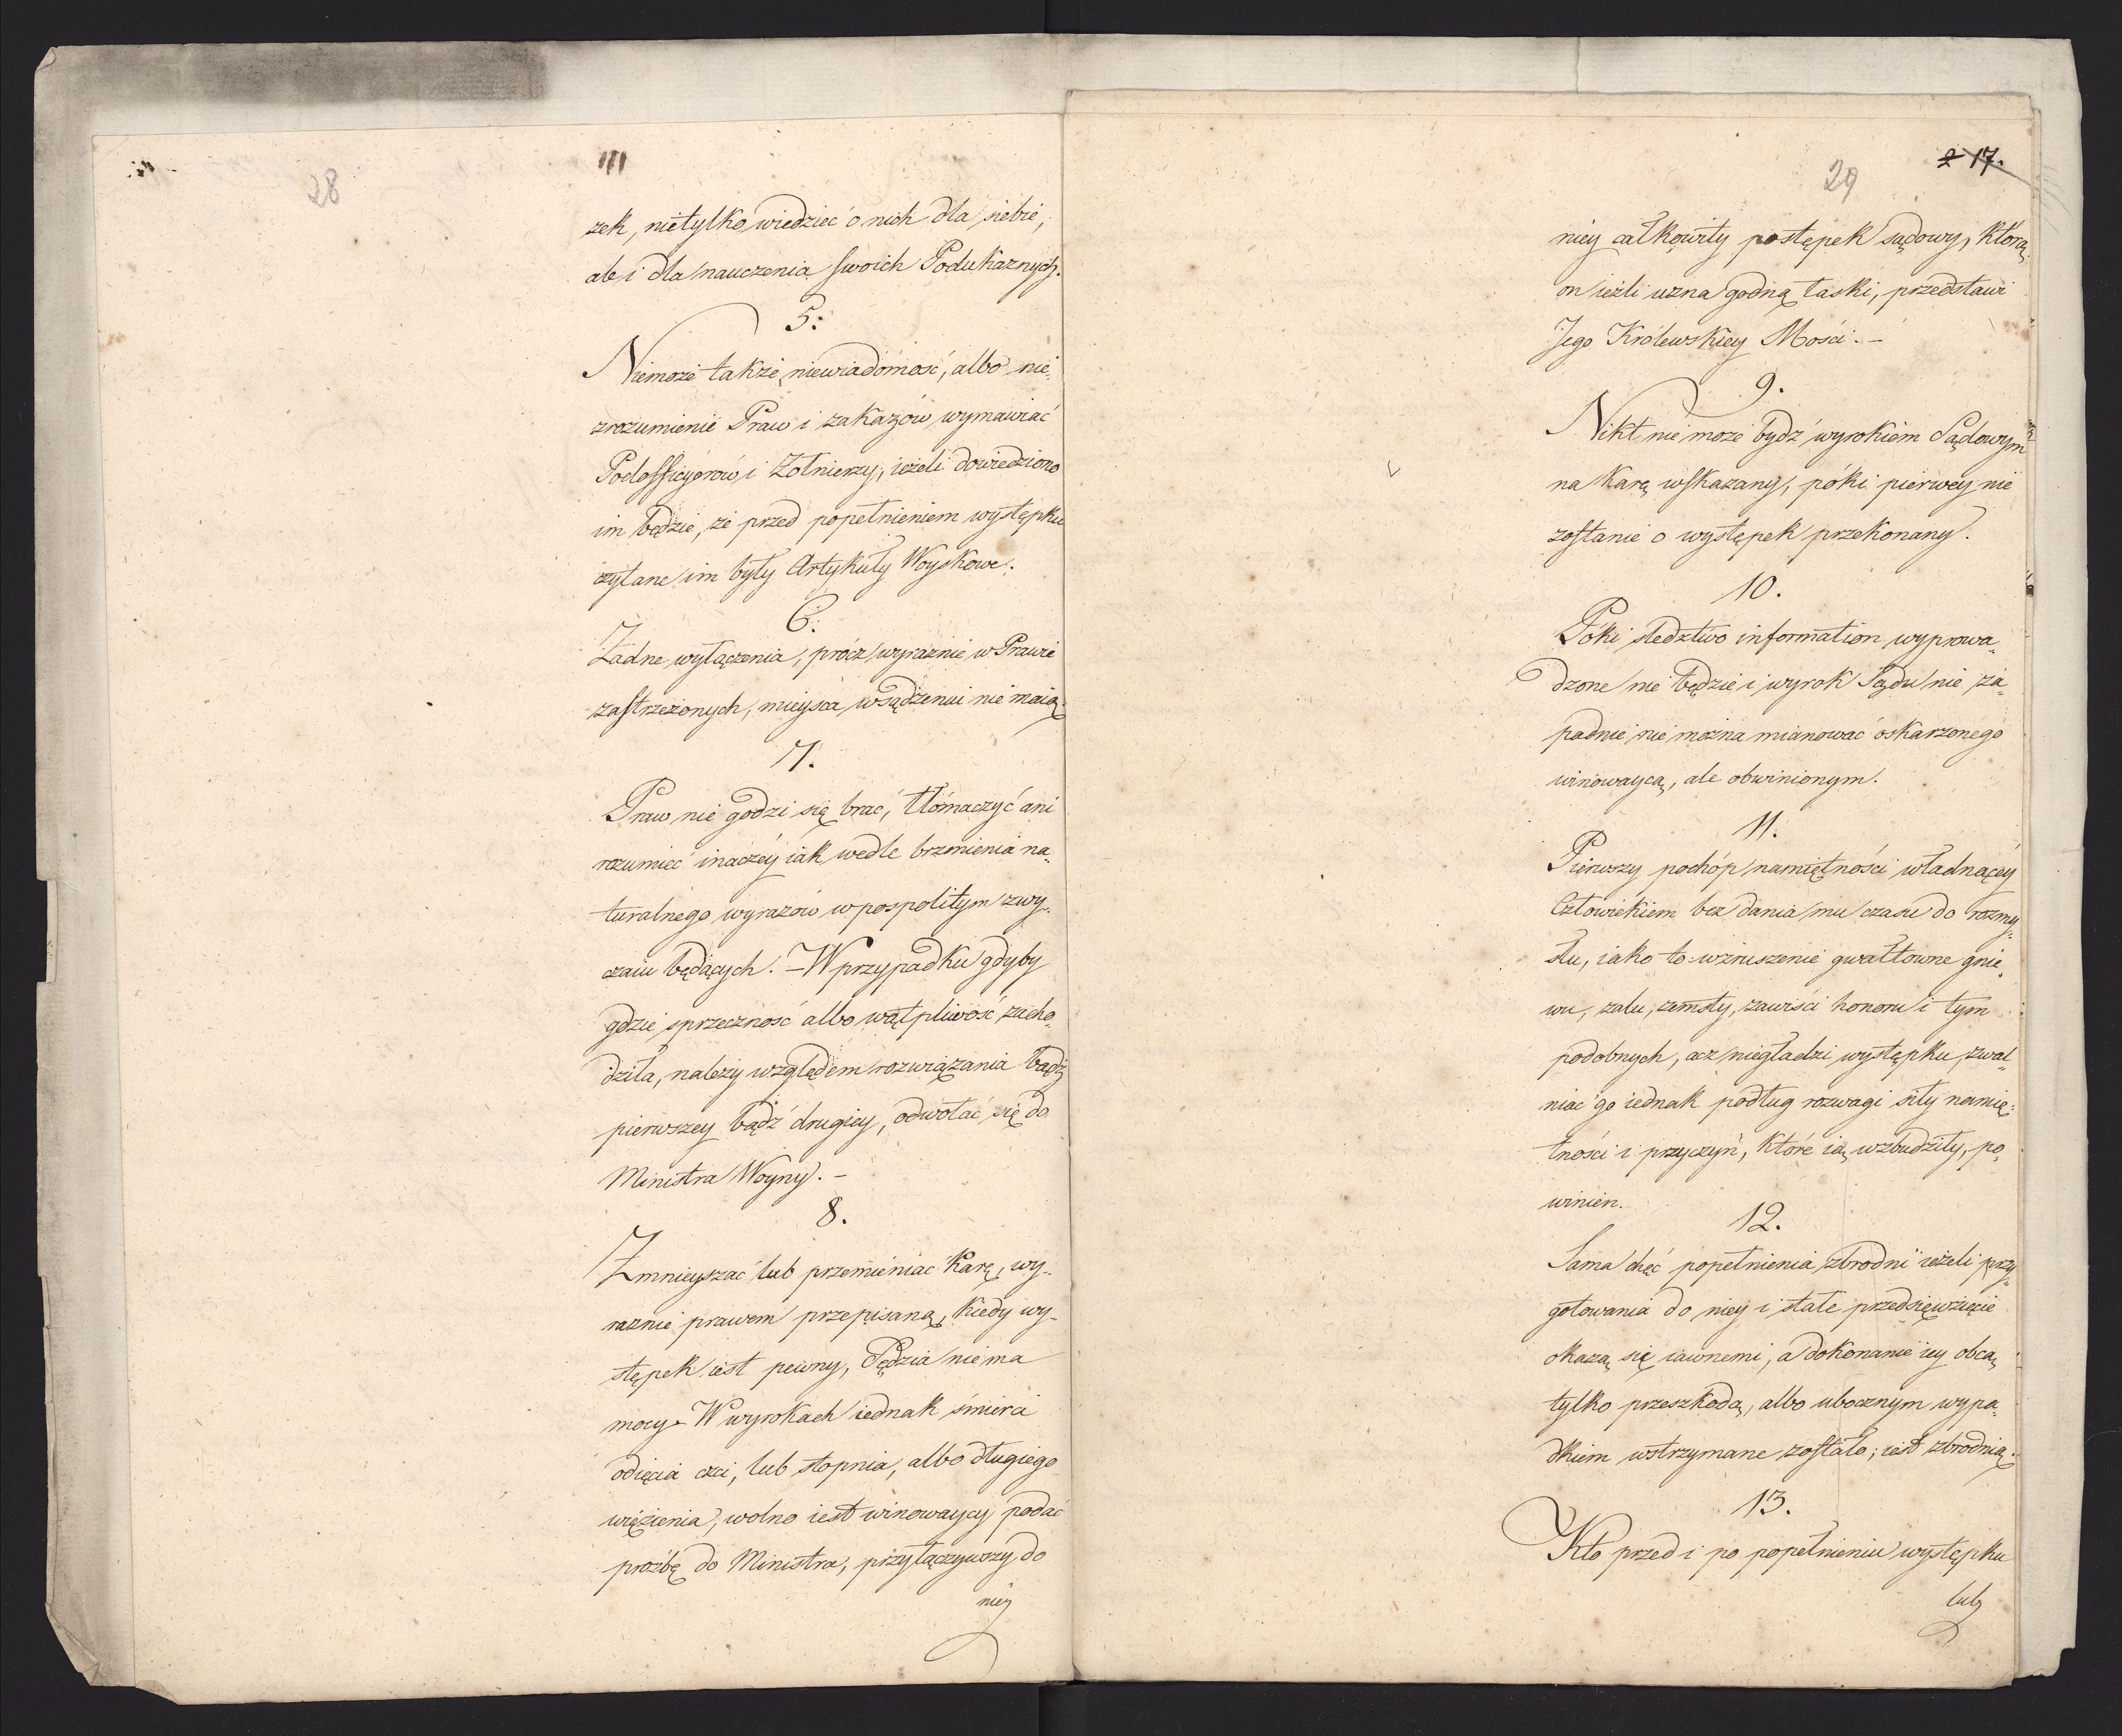 28
zek, nietylko wiedzieć o nich dla siebie,
ale i dla nauczenia swoich Podukaznych.
5.
Niemoże także niewiadomość, albo nie„
zrozumienie Praw i zakazów wymawiać
Podofficyerów i Żołnierzy, ieżeli dowiedziono
im będzie, że przed popełnieniem występku
czytane im były Artykuły Woyskowe.
6.
Żadne wyłączenia, prócz wyraznie w Prawie
zastrzeżonych, mieysca w sądzeniu nie maią.
7.
Praw nie godzi się brać, tłómaczyć ani
rozumieć inaczéy iak wedle brzmienia na„
turalnego wyrazów w pospolitym zwy„
czaiu będących. – W przypadku gdyby
gdzie sprzeczność albo wątpliwość zacho„
dziła, należy względem rozwiązania bądź
pierwszey bądź drugiey, odwołać się do
Ministra Woyny. –
8.
Zmnieyszać lub przemieniac karę, wy„
raznie prawem przepisaną, kiedy wy„
stępek iest pewny, Sędzia nie ma
mocy. W wyrokach iednak śmierci
odięcia czci, lub stopnia, albo długiego
więzienia, wolno iest winowaycy podać
prozbę do Ministra, przyłączywszy do
niey
29
2 17.
niey całkowity postępek sądowy, którą
on ieżli uzna godną łaski, przedstawi
Jego Królewskiey Mości. –
9.
Nikt nie może bydź wyrokiem Sądowym
na karę wskazany, póki pierwey nie
zostanie o występek przekonany.
10.
Póki śledztwo information wyprowa„
dzone nie będzie i wyrok Sądu nie za„
padnie nie można mianować oskarzonego
winowaycą, ale obwinionym.
11.
Pierwszy pochóp namiętności władnącéy
Człowiekiem bez dania mu czasu do rozmy„
słu, iako to: wzruszenie gwałtowne gnie„
wu, żalu, zemsty, zawiści honoru i tym
podobnych, acz niegładzi występku, zwal„
niać go iednak podług rozwagi siły namię„
tności i przyczyn, które ią wzbudziły, po„
winien.
12.
Sama chęć popełnienia zbrodni ieżeli przy„
gotowania do niey i stałe przedsięwzięcie
okażą się iawnemi, a dokonanie iey obcą
tylko przeszkodą, albo ubocznym wypa„
dkiem wstrzymane zostało; iest zbrodnią.
13.
Kto przed i po popełnieniu występku
lub